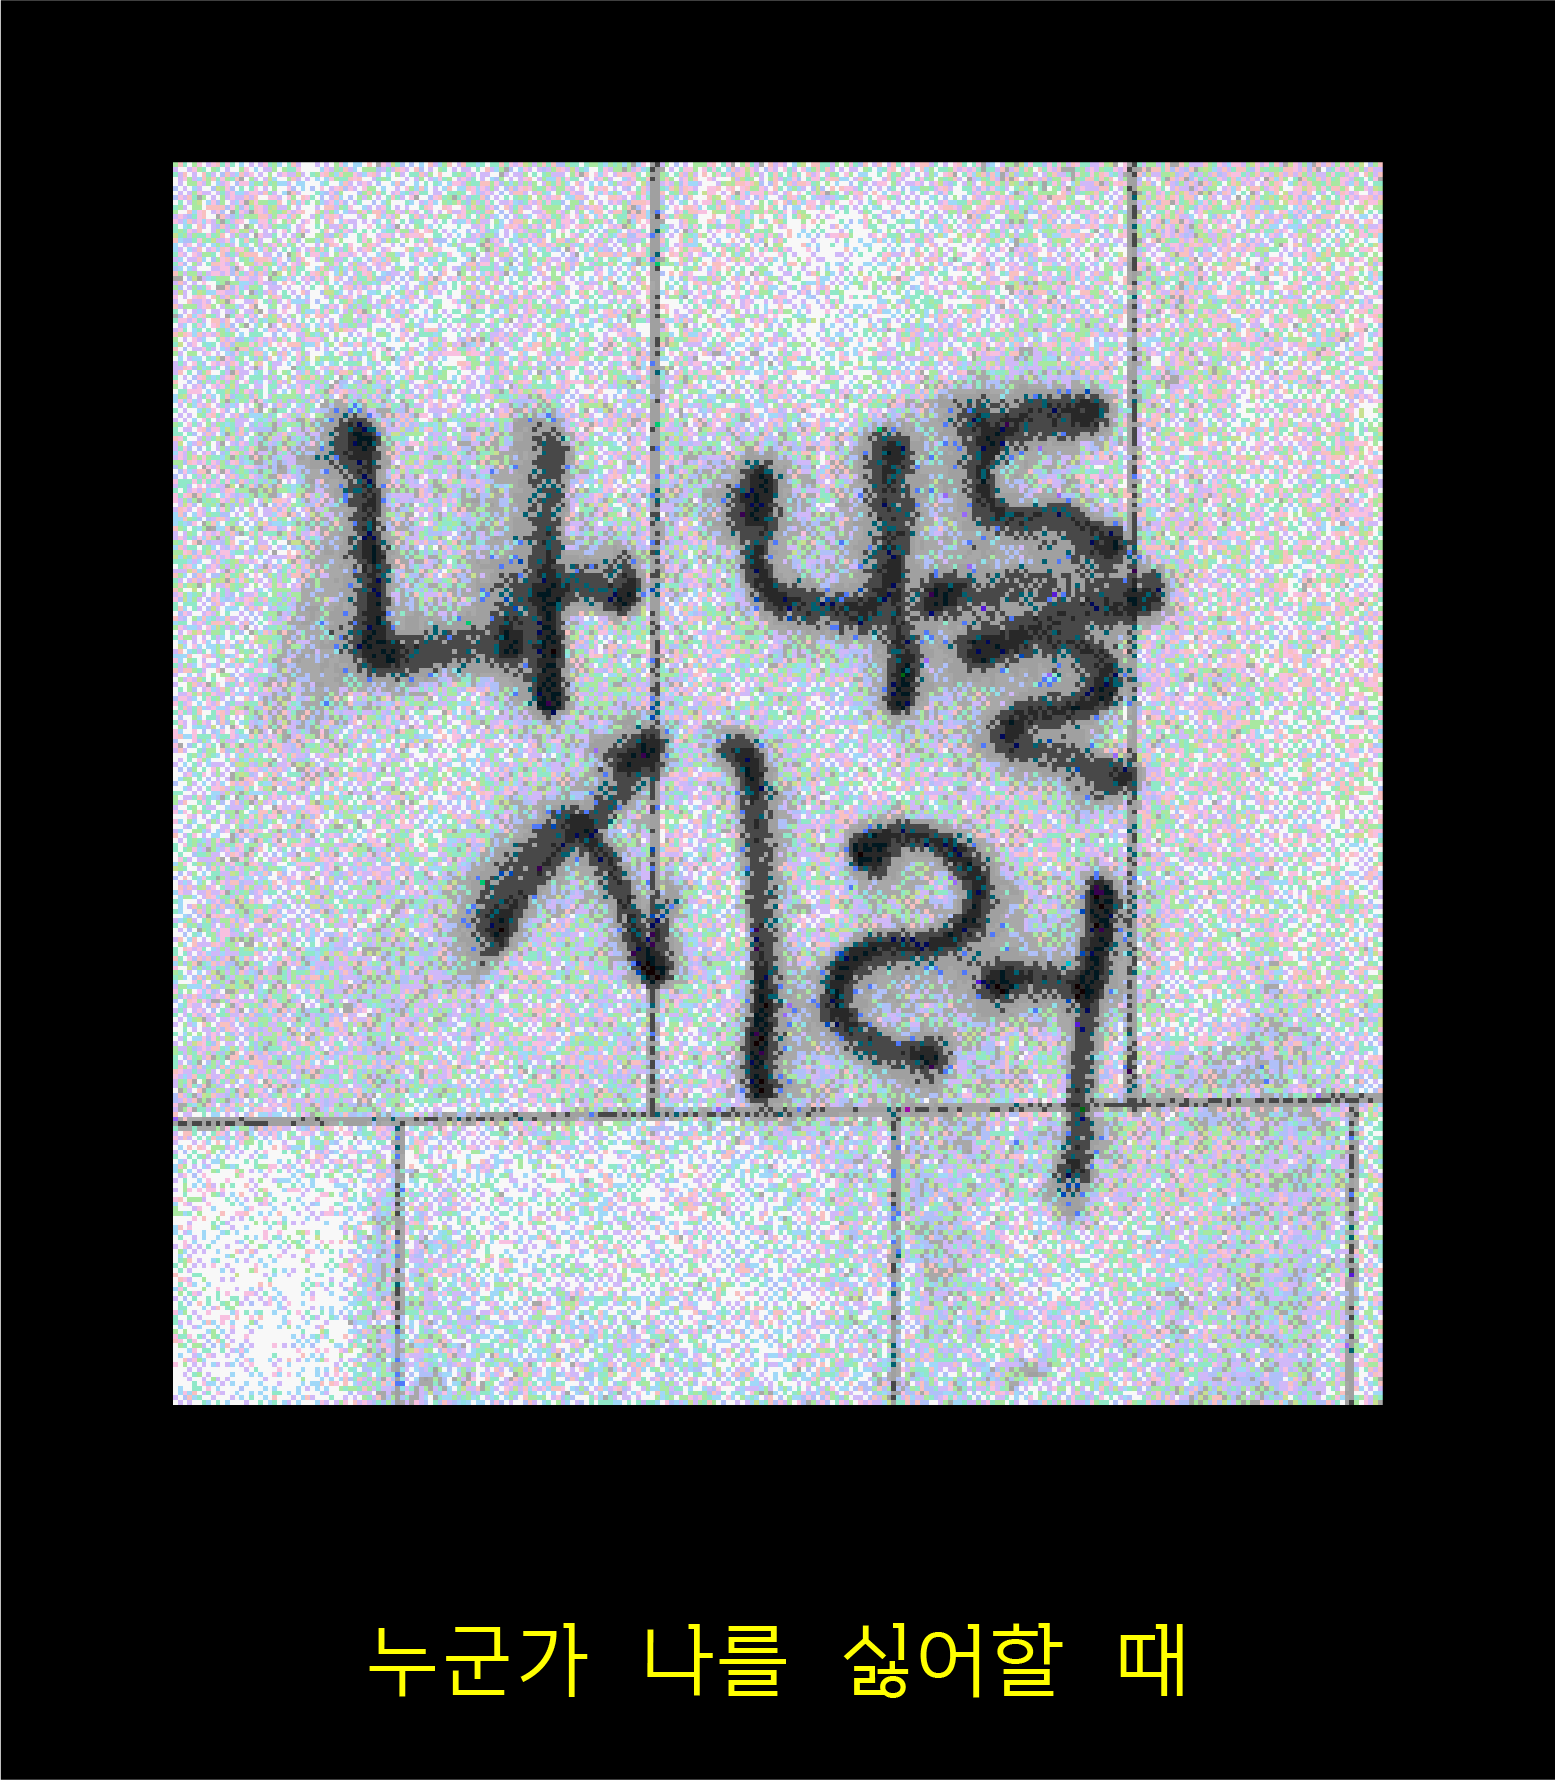 나 너를
시러
누군가 나를 싫어할 때